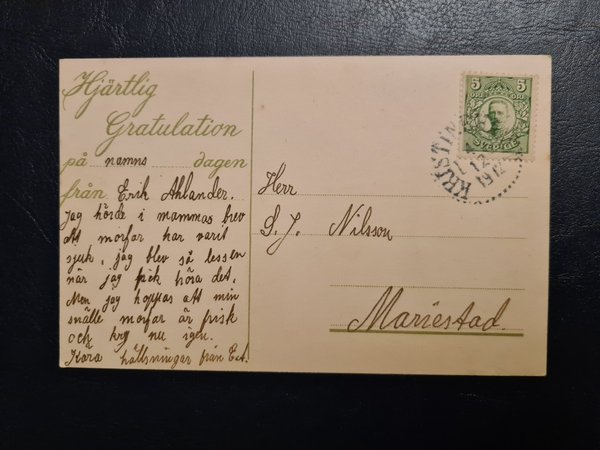 Hjärtlig
Gratulation
på namns dagen
från Erik Ahlander.
Jag hörde i mammas brev
att morfar har varit
sjuk, jag blev så lessen
när jag fick höra det,
Men jag hoppas att min
snälle morfar är frisk
och kry nu igen.
Kära hälsningar från
5 5
SVERIGE
KRISTIN
1 12
1912
Herr
S. J. Nilsson
Mariestad.